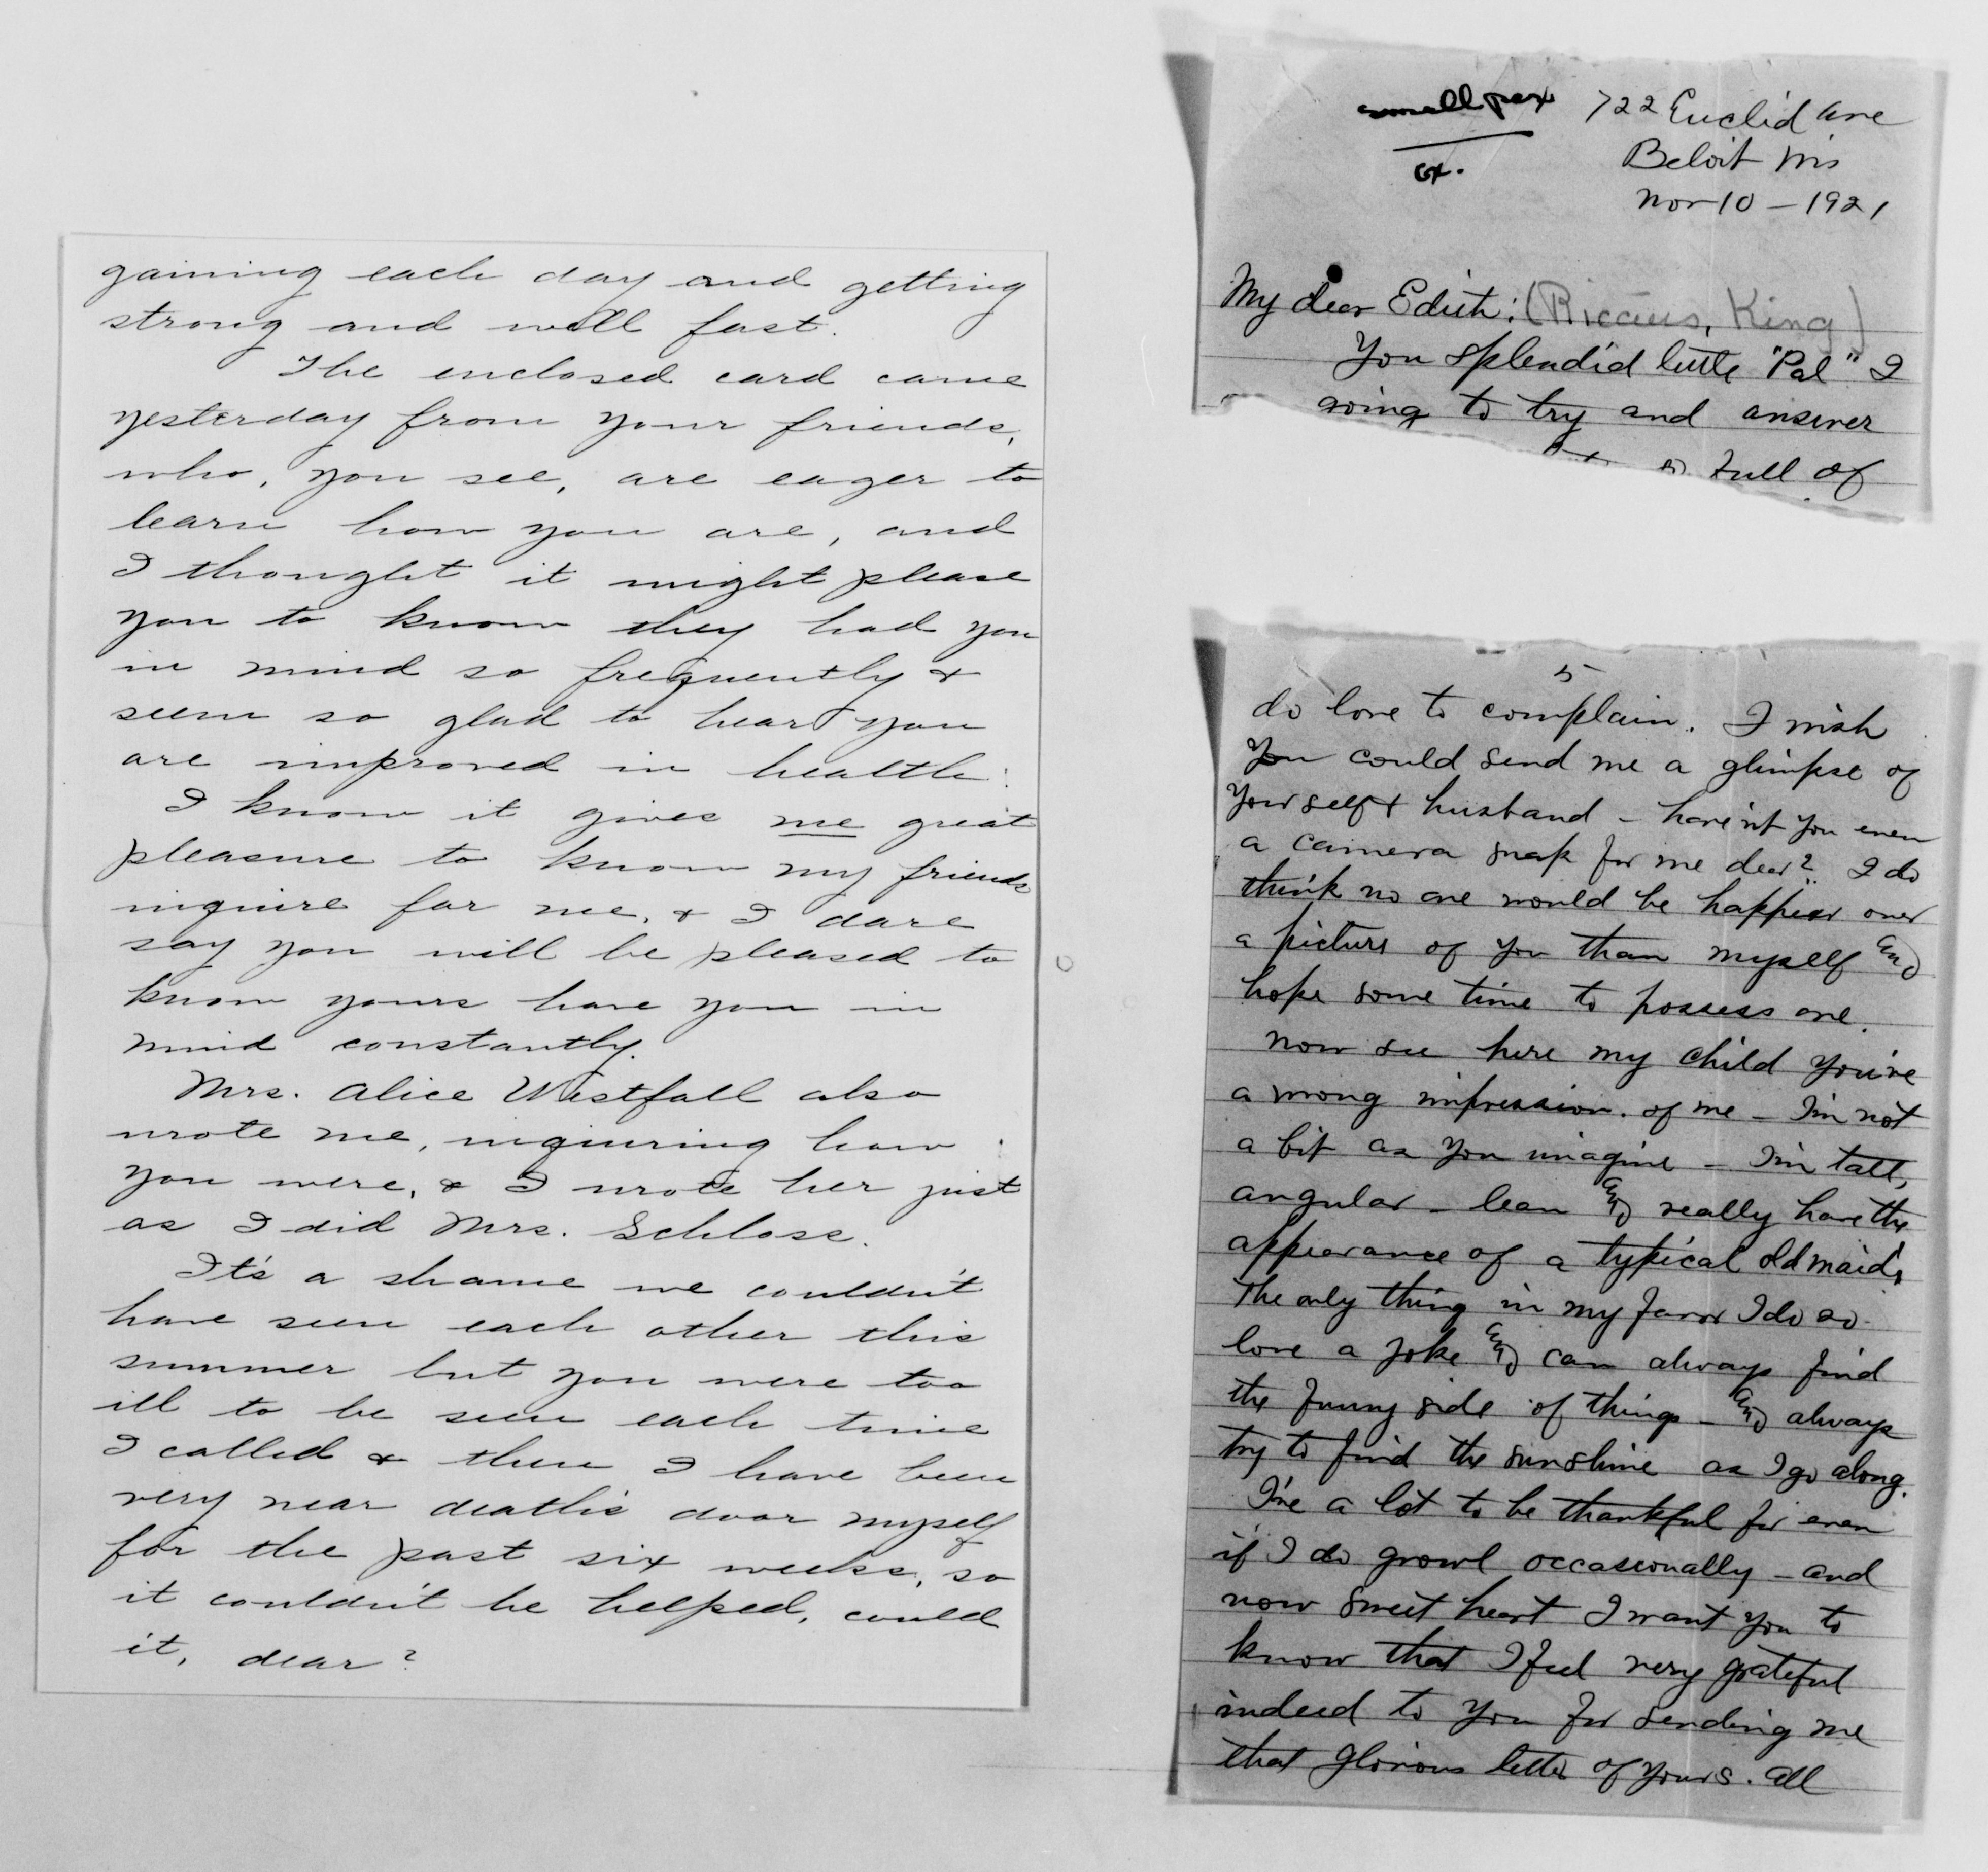 gaining each day and getting
strong and well fast.
The enclosed card came
yesterday from your friends,
who, you see, are eager to
learn how you are, and
I thought it might please
you to know they had you
in mind so frequently &
seem so glad to hear you
are improved in health.
I know it gives me great
pleasure to know my friends
inquire for me, & I dare
say you will be pleased to
know yours have you in
mind constantly.
Mrs. Alice Westfall also
wrote me, inquiring how
you were, & I wrote her just
as I did Mrs. Schloss.
It's a shame we couldn't
have seen each other this
summer but you were too
ill to be seen each time
I called & then I have been
very near death's door myself
for the past six weeks, so
it couldn't be helped, could
it, dear?
small pox
722 Euclid Ave
Beloit Wis
Nov 10 - 1921
My dear Edith: (Ricaus, King)
You splendid little "Pal" I
going to try and answer
full of
5
do love to complain. I wish
you could send me a glimpse of
yourself & husband - haven't you even
a camera snap for me dear? I do
think no one would be happier over
a picture of you than myself and
hope some time to possess one.
Now see here my child you've
a wrong impression of me - I'm not
a bit as you imagine - I'm tall,
angular - lean and really have the
appearance of a typical old maid,
The only thing in my favor I do so
love a joke and can always find
the funny side of things - and always
try to find the sunshine as I go along.
I've a lot to be thankful for even
if I do growl occasionally - and
now sweet heart I want you to
know that I feel very grateful
indeed to you for sending me
that glorious letter of yours. All